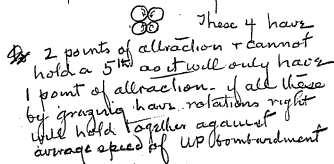 These 4 have
2 points of attraction & cannot
hold a 5th as it will only have
1 point of attraction - if all these
by grazing have rotations right
will hold together against
average speed of UP bombardment